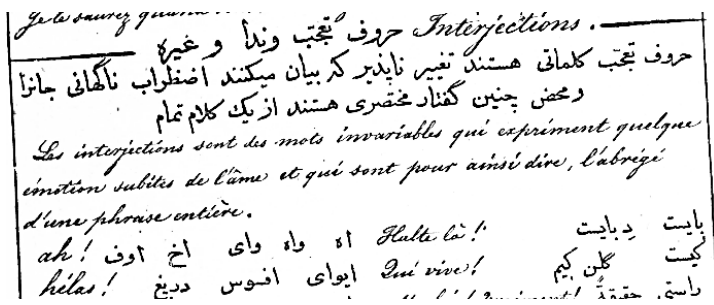 Je le saurez quand
Interjections. حروف تعجّب وندا و غیره
حروف تعجّب کلماتی هستند تغییر ناپذیر که بیان میکنند اضطراب ناگهانی جانرا
و محض چنین گفتار مختصری هستند از یك کلام تمام
Les interjections sont des mots invariables qui expriment quelque
émotion subites de l'âme et qui sont pour ainsi dire, l'abrégé
d'une phrase entière.
ah! اه واه وای اخ اوف Halte là! بایست دبایست
hélas! ایوای افسوس دریغ Qui vive! کیست گلن کیم
راستی حقیقةً